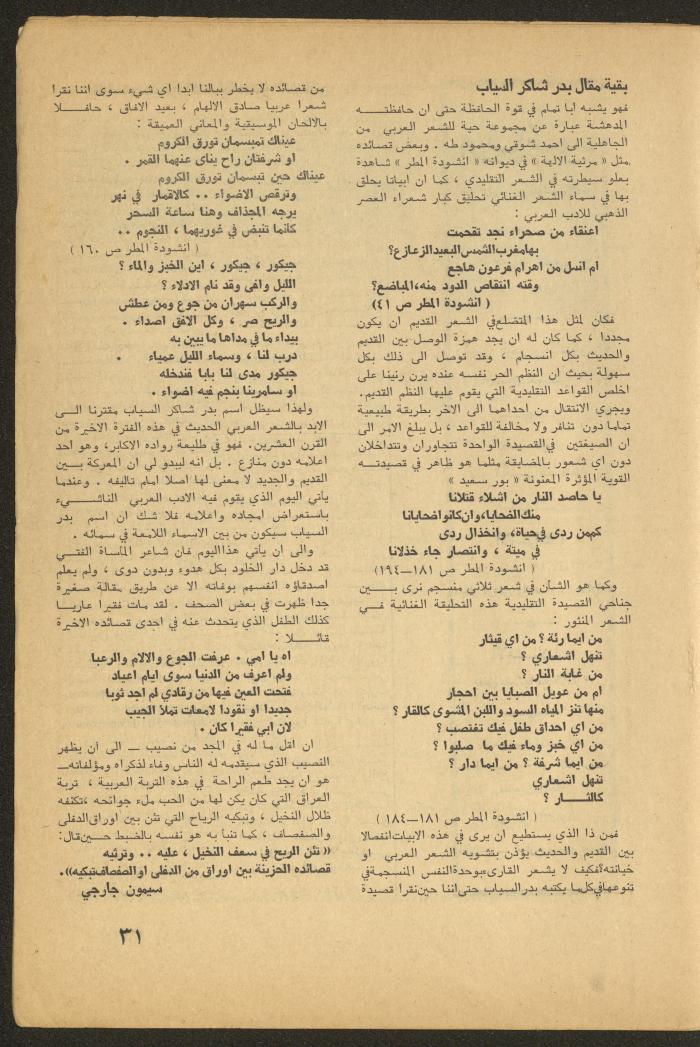 بقية مقال بدر شاكر السياب
فهو يشبه ابا تمام في قوة الحافظة حتى ان حافظتـــه
المدهشة عبارة عن مجموعة حية للشعر العربي من
الجاهلية الى احمد شوقي ومحمود طه . وبعض قصائده
مثل « مرثية الالهة » في ديوانه « انشودة المطر » شاهدة
بعلو سيطرته في الشعر التقليدي ، كما ان ابياتا يحلق
بها في سماء الشعر الغنائي تحليق كبار شعراء العصر
الذهبي للادب العربي :
اعنقاء من صحراء نجد تقحمت
بها مغرب الشمس البعيد الزعازع؟
ام انسل من اهرام فرعون هاجع
وقته انتقاص الدود منه، المباضع؟
( انشودة المطر ص ٤١)
فكان لمثل هذا المتضلع في الشعر القديم ان يكون
مجددا ، كما كان له ان يجد همزة الوصل بين القديم
والحديث بكل انسجام ، وقد توصل الى ذلك بكل
سهولة بحيث ان النظم الحر نفسه عنده يرن رنينا على
اخلص القواعد التقليدية التي يقوم عليها النظم القديم.
ويجري الانتقال من احداهما الى الاخر بطريقة طبيعية
تماما دون تنافر ولا مخالفة للقواعد ، بل يبلغ الامر الى
ان الصيغتين في القصيدة الواحدة تتجاوران وتتداخلان
دون اي شعور بالمضايقة مثلما هو ظاهر في قصيدتــه
القوية المؤثرة المعنونة « بور سعيد »
يا حاصد النار من اشلاء قتلانا
منك الضحايا، وان كانوا ضحايانا
كم من ردى في حياة، وانخذال ردى
في ميتة ، وانتصار جاء خذلانا
( انشودة المطر ص ١٨١—١٩٤)
وكما هو الشأن في شعر ثلاثي منسجم نرى بــــين
جناحي القصيدة التقليدية هذه التحليقة الغنائية فــي
الشعر المنثور :
من ايما رئة ؟ من اي قيثار
تنهل اشعاري ؟
من غابة النار ؟
ام من عويل الصبايا بين احجار
منها تنز المياه السود واللبن المشوى كالقار ؟
من اي احداق طفل فيك تغتصب ؟
من اي خبز وماء فيك ما صلبوا ؟
من ايما شرفة ؟ من ايما دار ؟
تنهل اشعاري
كالثــــار ؟
( انشودة المطر ص ١٨١—١٨٤)
فمن ذا الذي يستطيع ان يرى في هذه الابيات انفصالا
بين القديم والحديث يؤذن بتشويه الشعر العربي او
خيانته؟ فكيف لا يشعر القارىء بوحدة النفس المنسجمة في
تنوعها في كل ما يكتبه بدر السياب حتى اننا حين نقرا قصيدة
من قصائده لا يخطر ببالنا ابدا اي شيء سوى اننا نقرا
شعرا عربيا صادق الالهام ، بعيد الافاق ، حافــــلا
بالالحان الموسيقية والمعاني العميقة :
عيناك تمبسمان تورق الكروم
او شرفتان راح يناى عنهما القمر .
عيناك حين تبسمان تورق الكروم
وترقص الاضواء .. كالاقمار في نهر
يرجه المجذاف وهنا ساعة السحر
كانما تنبض في غوريهما ، النجوم ..
( انشودة المطر ص ١٦٠ )
جيكور ، جيكور ، اين الخبز والماء ؟
الليل وافى وقد نام الادلاء ؟
والركب سهران من جوع ومن عطش
والريح صر ، وكل الافق اصداء .
بيداء ما في مداها ما يبين به
درب لنا ، وسماء الليل عمياء .
جيكور مدى لنا بابا فندخله
او سامرينا بنجم فيه اضواء .
ولهذا سيظل اسم بدر شاكر السياب مقترنا الــى
الابد بالشعر العربي الحديث في هذه الفترة الاخيرة من
القرن العشرين. فهو في طليعة رواده الاكابر، وهو احد
اعلامه دون منازع . بل انه ليبدو لي ان المعركة بـــين
القديم والجديد لا معنى لها اصلا امام تاليفه . وعندما
ياتي اليوم الذي يقوم فيه الادب العربي الناشـــيء
باستعراض امجاده واعلامه فلا شك ان اسم بدر
السياب سيكون من بين الاسماء اللامعة في سمائه .
والى ان ياتي هذا اليوم فان شاعر الماساة الفتــي
قد دخل دار الخلود بكل هدوء وبدون دوى ، ولم يعلم
اصدقاؤه انفسهم بوفاته الا عن طريق مقالة صغيرة
جدا ظهرت في بعض الصحف . لقد مات فقيرا عاريــا
كذلك الطفل الذي يتحدث عنه في احدى قصائده الاخيرة
قائــــلا :
اه يا امي . عرفت الجوع والالام والرعبا
ولم اعرف من الدنيا سوى ايام اعياد
فتحت العين فيها من رقادي لم اجد ثوبا
جديدا او نقودا لامعات تملا الجيب
لان ابي فقيرا كان .
ان اقل ما له في المجد من نصيب — الى ان يظهر
النصيب الذي سيقدمه له الناس وفاء لذكراه ومؤلفاته—
هو ان يجد طعم الراحة في هذه التربة العربية ، تربة
العراق التي كان يكن لها من الحب ملء جوانحه ،تكتنفه
ظلال النخيل ، وتبكيه الرياح التي تئن بين اوراق الدفلى
والصفصاف ، كما تنبأ به هو نفسه بالضبط حــين قال:
(( تئن الريح في سعف النخيل ، عليه .. وترثيه
قصائده الحزينة بين اوراق من الدفلى او الصفصاف تبكيه)).
سيمون جارجي
٣١